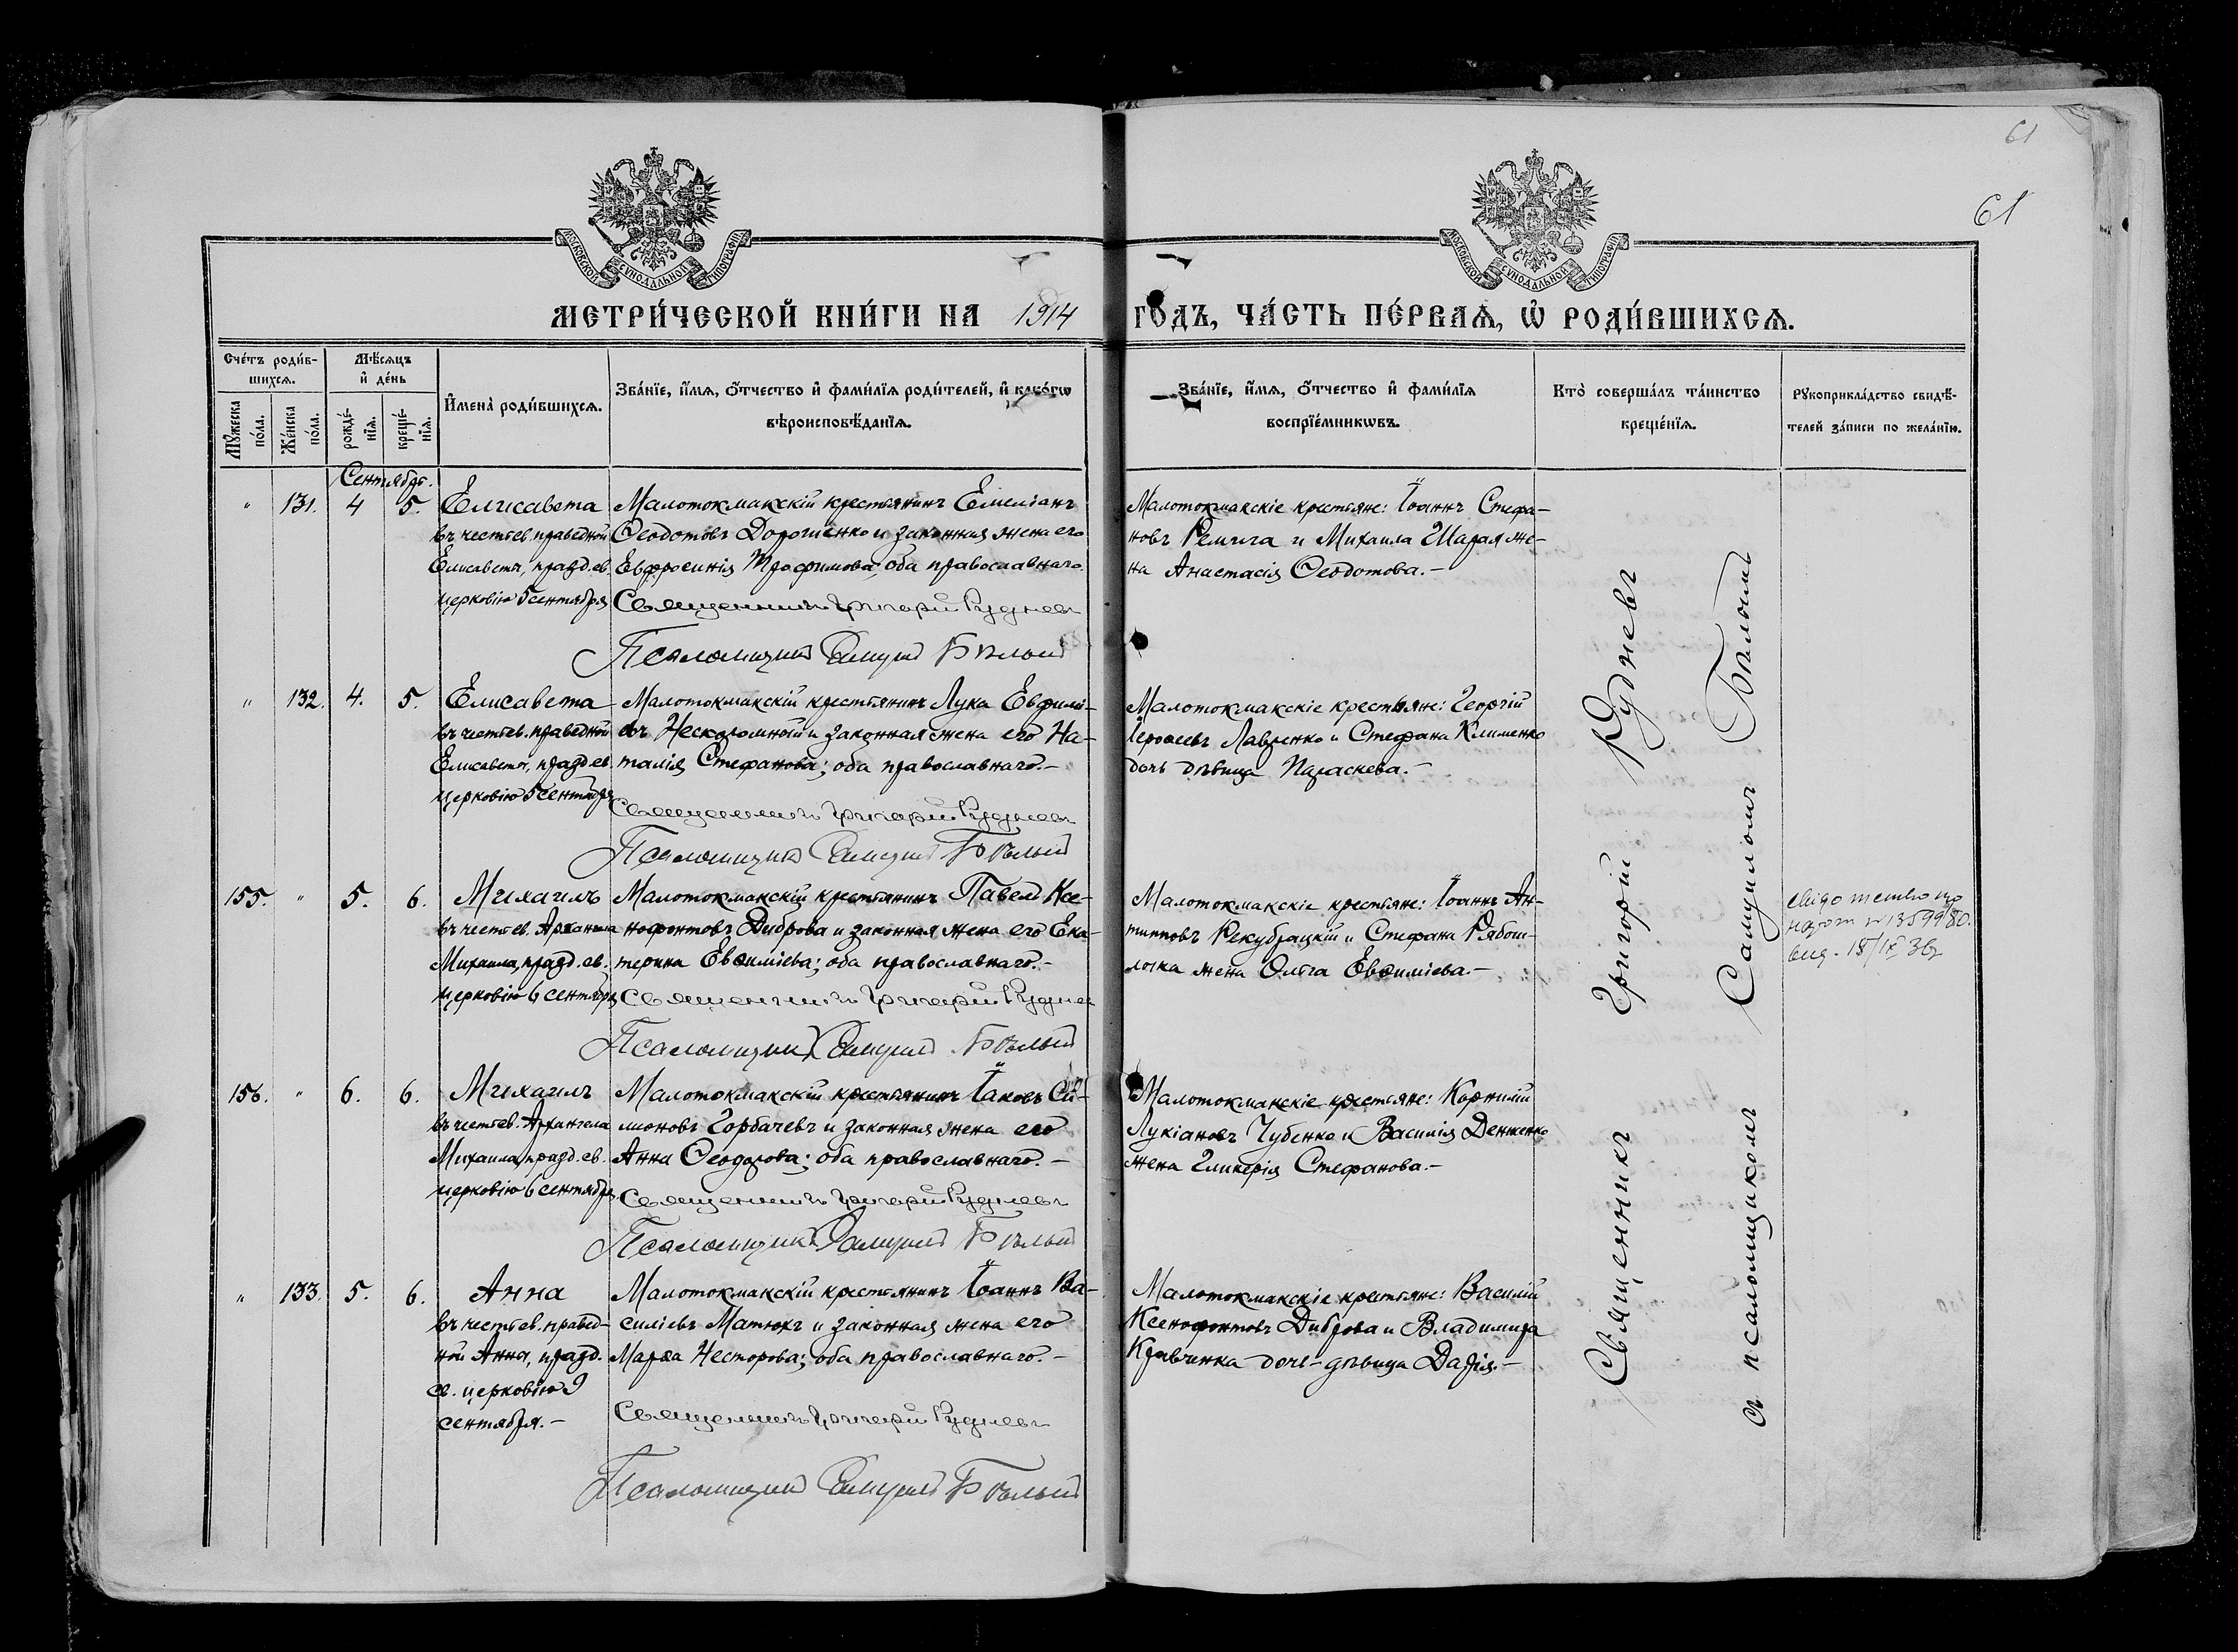 61
61
МОСКОВСКОЙ СѴНОДАЛЬНОЙ ТИПОГРАФІИ
МОСКОВСКОЙ СѴНОДАЛЬНОЙ ТИПОГРАФІИ
МЕТРИ́ЧЕСКОЙ КНИ́ГИ НА 1914 ГОДЪ, ЧА́СТЬ ПЕ́РВАѦ, Ѡ҆ РОДИ́ВШИХСѦ.
Сче́тъ роди́в-
шихсѧ.
Мѣ́сѧцъ
и҆ де́нь
Мꙋ́жеска
по́ла.
Же́нска
по́ла.
рожде́-
нїѧ.
креще́-
нїѧ.
И҆мена̀ роди́вшихсѧ.
Зва́нїе, и҆́мѧ, ѻ҆́тчество и҆ фами́лїѧ роди́телей, и҆ како́гѡ
вѣроисповѣ́данїѧ.
Зва́нїе, и҆́мѧ, ѻ҆́тчество и҆ фами́лїѧ
воспрїе́мникѡвъ.
Кто̀ соверша́лъ та́инство
креще́нїѧ.
Рꙋкоприкла́дство свидѣ́-
телей за́писи по жела́нїю.
Сентябрь.
" 131. 4 5. Елисавета
въ честь св. праведной
Елисаветы, празд. св.
церковію 5 сентября
Малотокмакскій крестьянинъ Емеліанъ
Ѳеодотовъ Дорошенко и законная жена его
Евфросинія Трофимова; оба православнаго.
Священникъ Григорій Рудневъ
Псаломщикъ Самуилъ Бѣлый
Малотокмакскіе крестьяне: Іоаннъ Стефа-
новъ Ремыга и Михаила Шарая же-
на Анастасія Ѳеодотова.-
" 132. 4. 5. Елисавета
въ честь св. праведной
Елисаветы, празд. св.
церковію 5 сентября
Малотокмакскій крестьянинъ Лука Евфимі-
евъ Нескоромный и законная жена его На-
талія Стефанова; оба православнаго.-
Священникъ Григорій Рудневъ
Псаломщикъ Самуилъ Бѣлый
Малотокмакскіе крестьяне: Георгій
Іероѳеевъ Лавренко и Стефана Клименко
дочь дѣвица Параскева.-
155. " 5. 6. Михаилъ
въ честь св. Архангела
Михаила, празд. св.
церковію 6 сентября
Малотокмакскій крестьянинъ Павелъ Ксе-
нофонтовъ Диброва и законная жена его Ека-
терина Евѳиміева; оба православнаго.-
Священникъ Григорій Рудневъ
Псаломщикъ Самуилъ Бѣлый
Малотокмакскіе крестьяне: Іоаннъ Ан-
типповъ Рекубрацкій и Стефана Рябош-
лыка жена Ольга Евѳиміева.-
№ 1359980.
156. " 6. 6. Михаилъ
въ честь св. Архангела
Михаила, празд. св.
церковію 6 сентября
Малотокмакскій крестьянинъ Іаковъ Си-
меоновъ Горбачевъ и законная жена его
Анна Ѳеодорова; оба православнаго.-
Священникъ Григорій Рудневъ
Псаломщикъ Самуилъ Бѣлый
Малотокмакскіе крестьяне: Корнилій
Лукіановъ Чубенко и Василія Денженко
жена Гликерія Стефанова.-
" 133. 5. 6. Анна
въ честь св. правед-
ной Анны, празд.
св. церковію 9
сентября.-
Малотокмакскій крестьянинъ Іоаннъ Ва-
силіевъ Матюхъ и законная жена его
Марѳа Несторова; оба православнаго.-
Священникъ Григорій Рудневъ
Псаломщикъ Самуилъ Бѣлый
Малотокмакскіе крестьяне: Василій
Ксенофонтовъ Диброва и Владимира
Кравчинка дочь-дѣвица Дарія.-
Священникъ Григорій Рудневъ
съ псаломщикомъ Самуиломъ Бѣлымъ